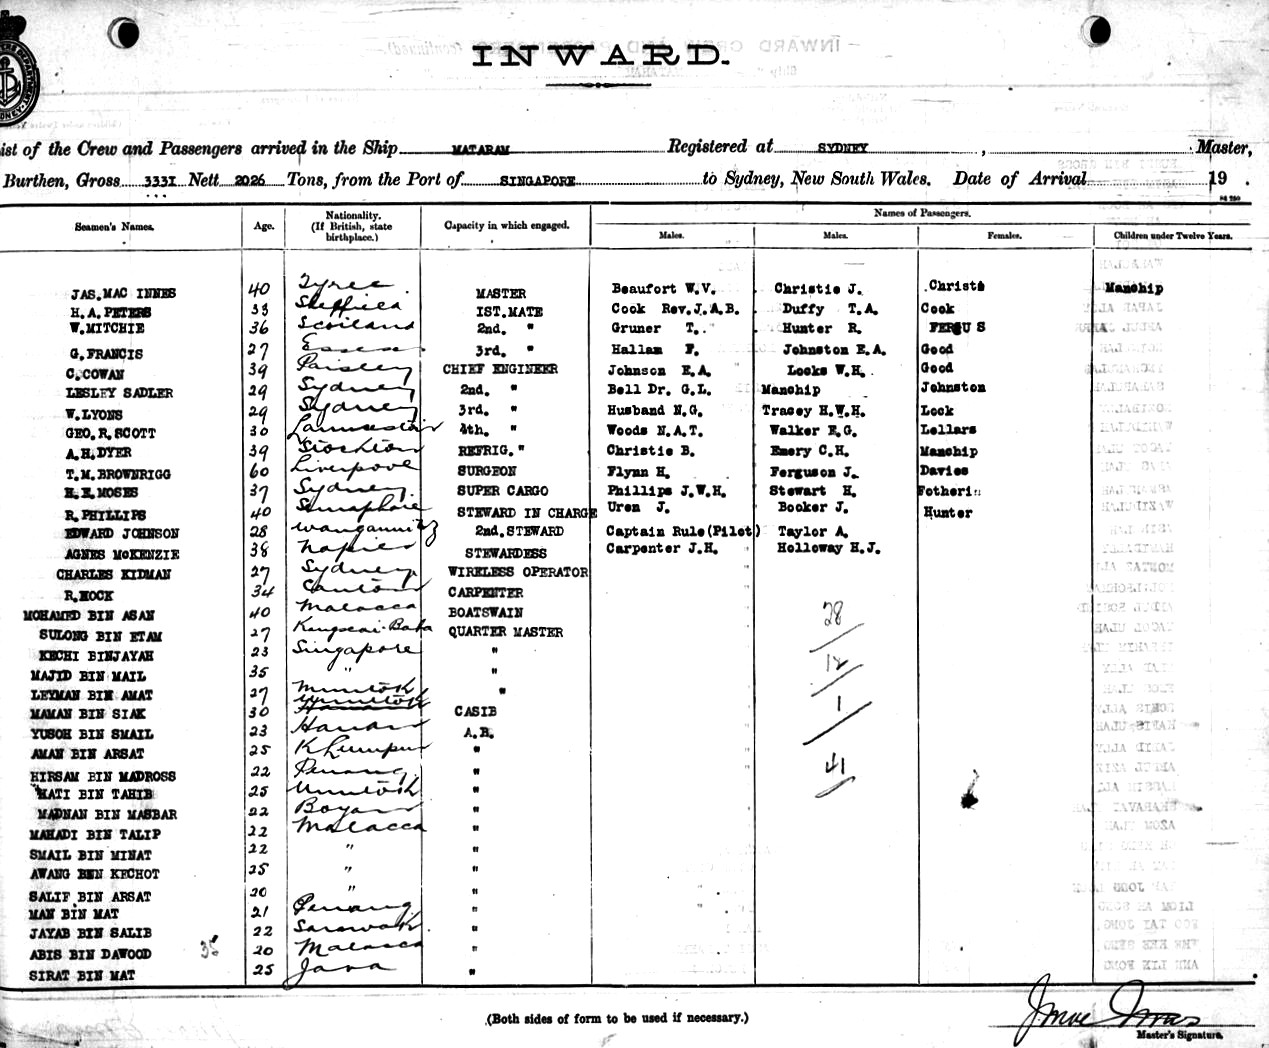 INWARD.
ist of the Crew and Passengers arrived in the Ship MATARAM Registered at SYDNEY , Master,
Burthen, Gross 3331 Nett 2026 Tons, from the Port of SINGAPORE to Sydney, New South Wales. Date of Arrival 19 .
Seamen's Names. Age. Nationality. (If British, state birthplace.) Capacity in which engaged. Names of Passengers.
Males. Males. Females. Children under Twelve Years.
JAS. MAC INNES 40 Tyree MASTER Beaufort W.V. Christie J. Christe Manchip
H.A. PETERS 33 Sheffield IST. MATE Cook Rev.J.A.B. Duffy T.A. Cook
W. MITCHIE 36 Scotland 2nd. " Gruner T. Hunter R. FERGUS
G. FRANCIS 27 Essex 3rd. " Hallam F. Johnston E.A. Good
C. COWAN 39 Paisley CHIEF ENGINEER Johnson E.A. Locks W.H. Good
LESLEY SADLER 29 Sydney 2nd. " Bell Dr. G.L. Manchip Johnston
W. LYONS 29 Sydney 3rd. " Husband N.G. Tracey H.W.H. Lock
GEO. R. SCOTT 30 4th. " Woods N.A.T. Walker E.G. Lellars
A.H. DYER 39 Stockton REFRIG. " Christie B. Emery C.H. Manchip
T.M. BROWNRIGG 60 Liverpool SURGEON Flynn H. Ferguson J. Davies
MOSES 37 Sydney SUPER CARGO Phillips J.W.H. Stewart H. Fotherin
R. PHILLIPS 40 Semaphore STEWARD IN CHARGE Uren J. Booker J. Hunter
EDWARD JOHNSON 28 Wanganui NZ 2nd. STEWARD Captain Rule(Pilot) Taylor A.
AGNES McKENZIE 38 Napier STEWARDESS Carpenter J.H. Holloway H.J.
CHARLES KIDMAN 27 Sydney WIRELESS OPERATOR
R. HOCK 34 Canton CARPENTER
MOHAMED BIN ASAN 40 Malacca BOATSWAIN 28
SULONG BIN ETAM 27 QUARTER MASTER
KECHI BINJAYAH 23 Singapore " 12
MAJID BIN MAIL 35 " "
LEYMAN BIN AMAT 27 Muntok " 1
MAMAN BIN SIAK 30 CASIB
YUSOH BIN SMAIL 23 A.B.
AMAN BIN ARSAT 25 K Lumpur " 41
HIRSAM BIN MADROSS 22 Penang "
MATI BIN TAHIB 25 Muntok "
MADNAN BIN MASBAR 22 Boyan "
MAHADI BIN TALIP 22 Malacca "
SMAIL BIN MINAT 22 " "
AWANG BEN KECHOT 25 " "
SALIF BIN ARSAT 20 " "
MAN BIN MAT 21 Penang "
JAYAB BIN SALIB 22 Sarawak "
ABIS BIN DAWOOD 35 20 Malacca "
SIRAT BIN MAT 25 Java "
(Both sides of form to be used if necessary.)
Master's Signature.